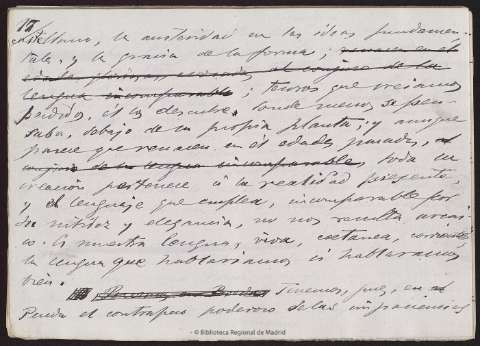 castellano, la austeridad en las ideas fundamen-
tales, y la gracia de la forma; renacen en el
al conjuro de la
lengua incomparable; tesoros que creíamos
perdidos, él los descubre, donde menos se pen-
saba, debajo de su propia planta; y aunque
parece que renacen en él edades pasadas, al
conjuro de su lengua incomparable, toda su
creación pertenece a la realidad presente,
y el lenguaje que emplea, incomparable por
su nitidez y elegancia, no nos resulta arcai-
co. Es nuestra lengua, viva, coetánea, corriente
la lengua que hablaríamos si habláramos
bien.
Tenemos, pues, en
Pereda el contrapeso poderoso de las impaciencias
© Biblioteca Regional de Madrid